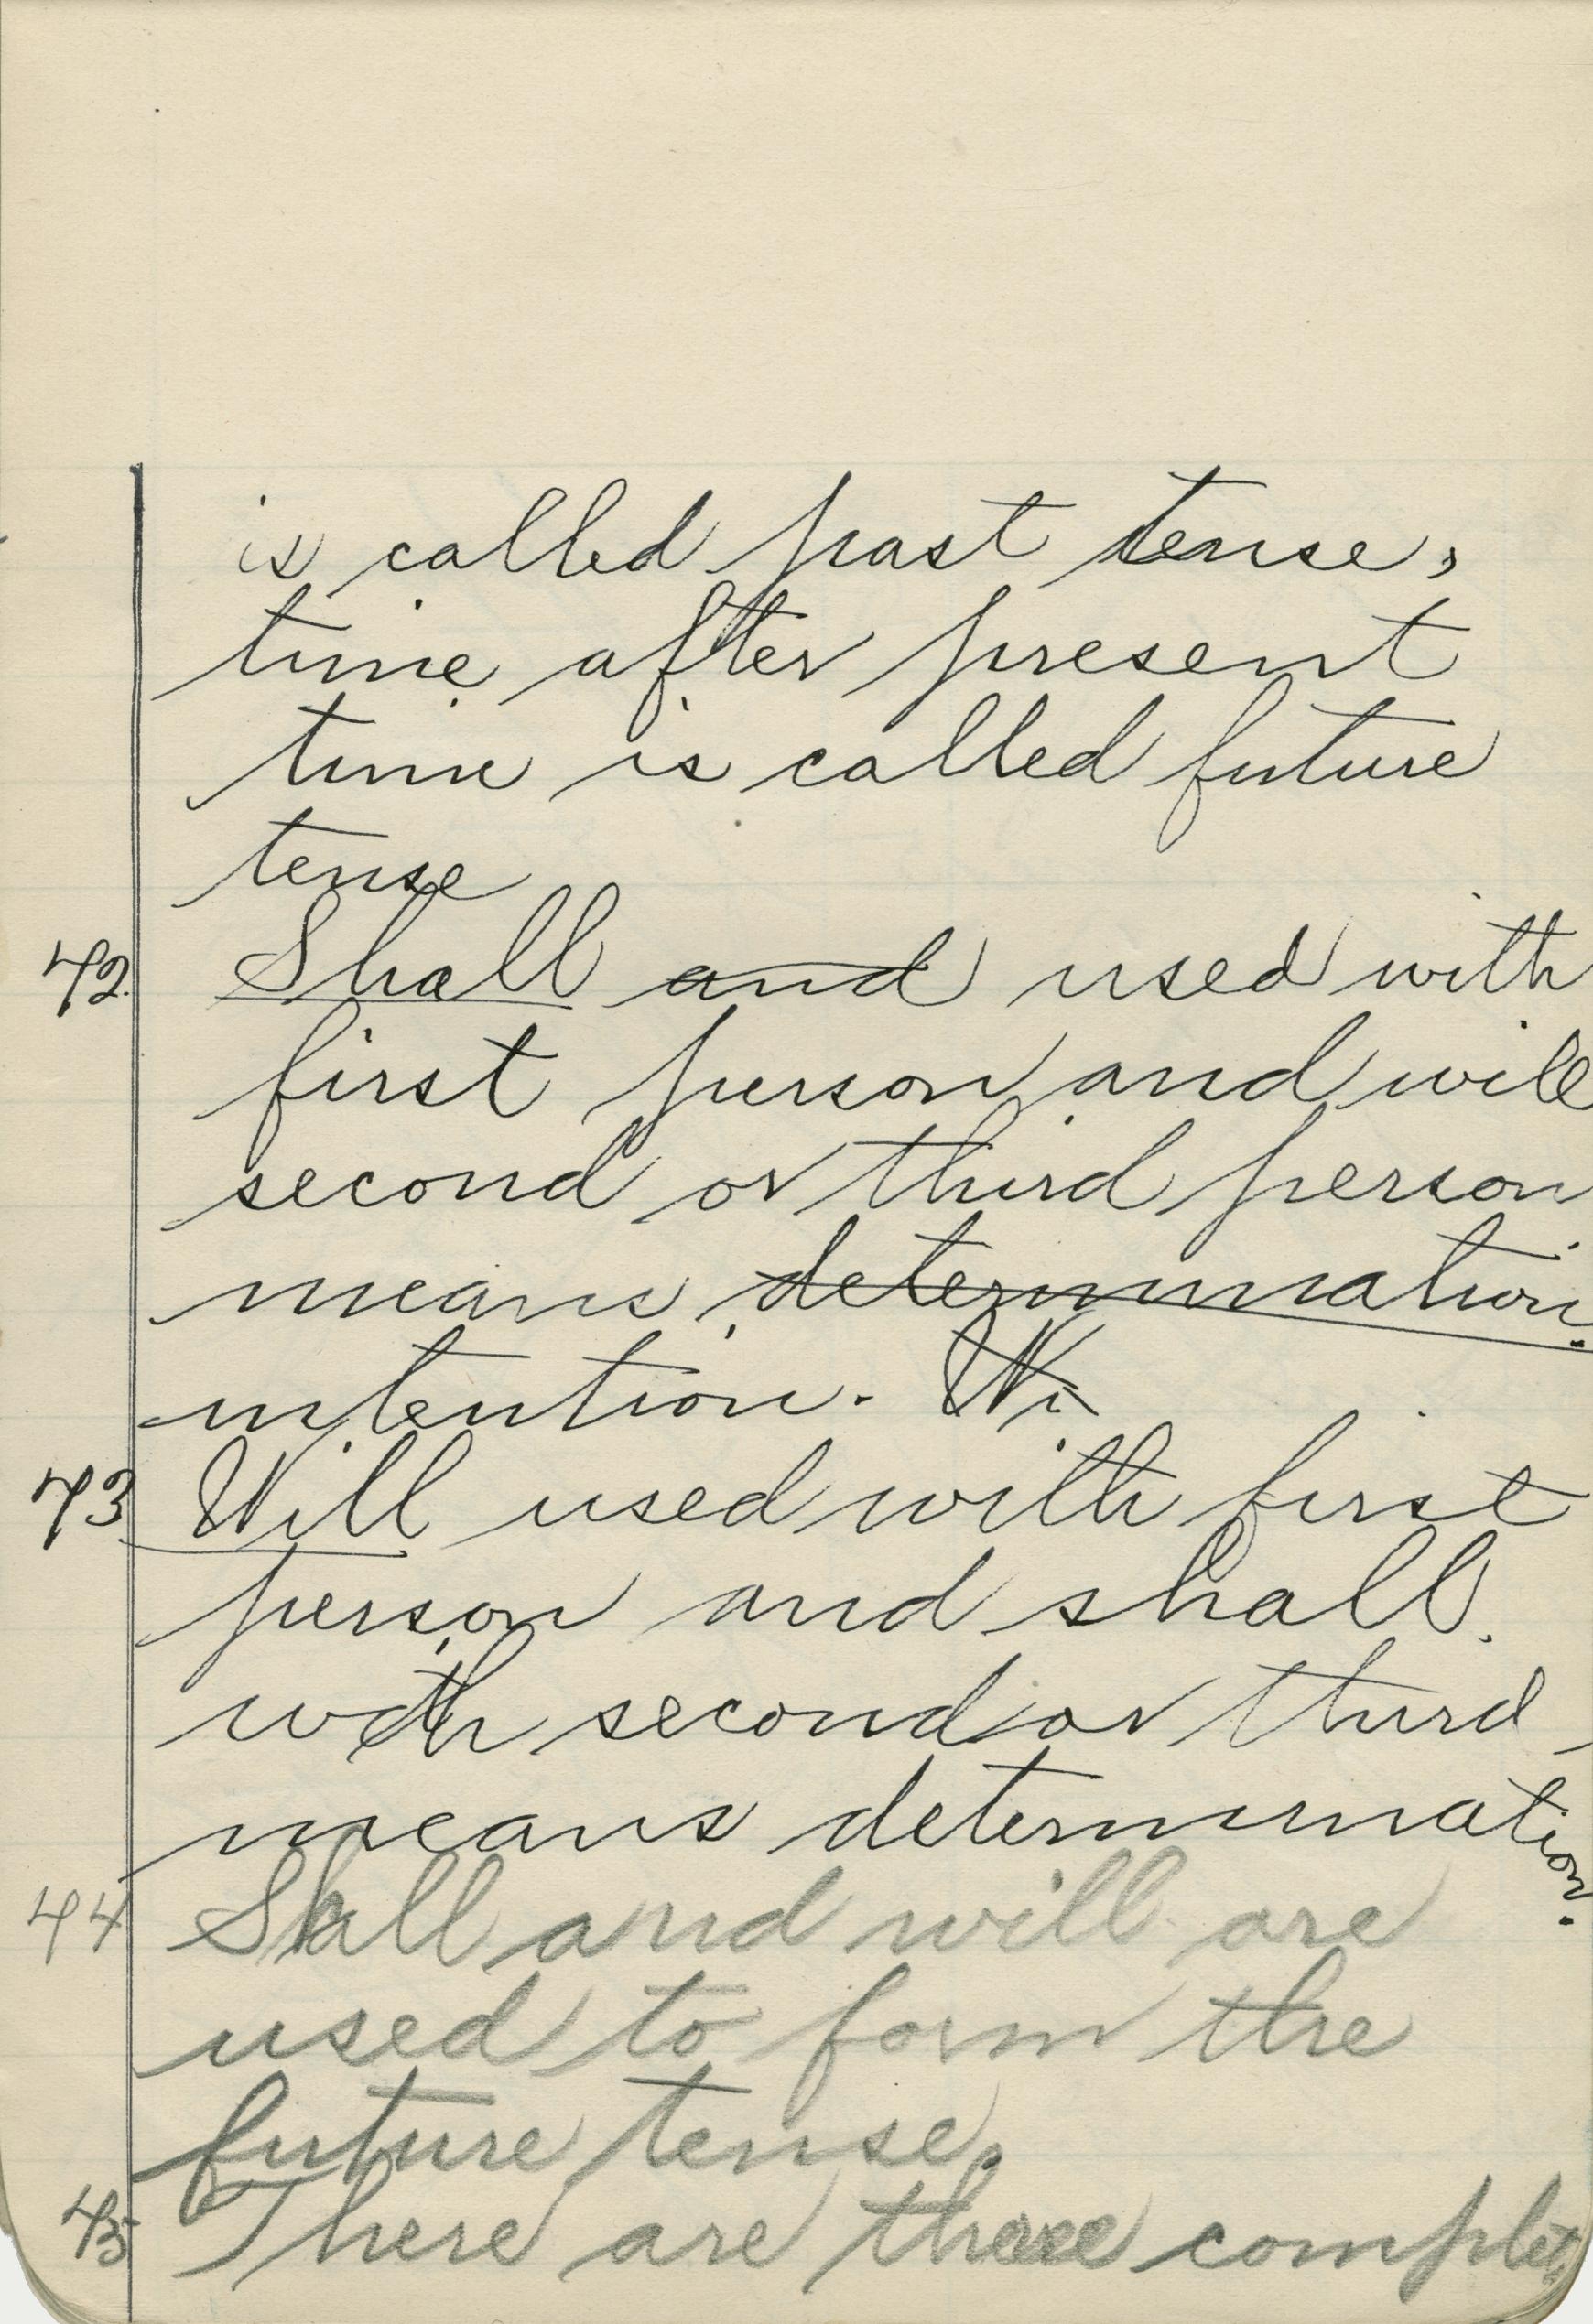 is called past tense,
time after present
time is called future
tense
42. Shall and used with
first person and will
second or third person
means determination.
intention. Wi
43. Will used with first
person and shall
with second or third
means determination.
44 Shall and will are
used to form the
future tense.
45 There are three complete